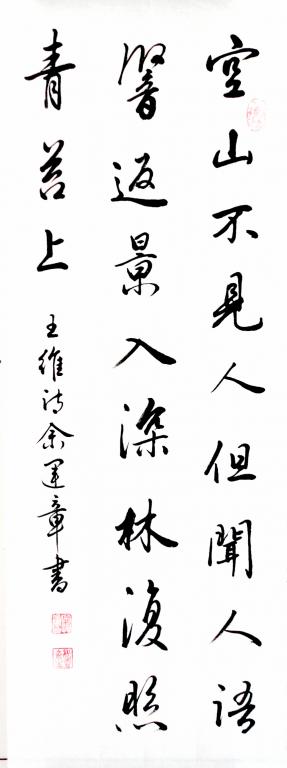 空山不見人但聞人語
響返景入深林復照
青苔上 王維詩余運章書